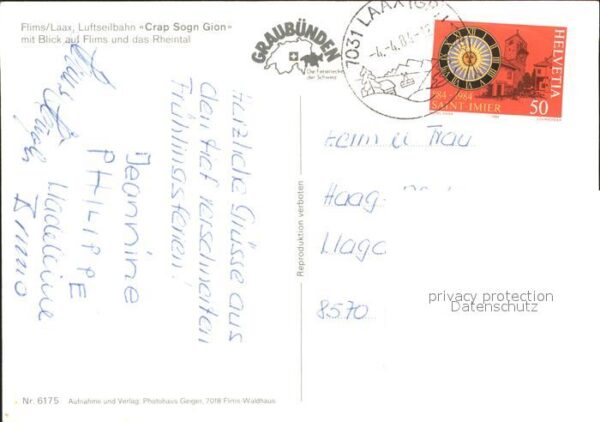 Flims/Laax, Luftseilbahn «Crap Sogn Gion»
mit Blick auf Flims und das Rheintal
GRAUBÜNDEN
Die Ferienecke
der Schweiz
7031 LAAX (GR)
-4.-4.
HELVETIA
884 1984
SAINT-IMIER
50
Herzliche Grüsse aus
den tief verschneiten
Frühlingsferien!
Jeannine
PHILIPPE
Madeleine
Bruno
Reproduktion verboten
Herrn u Frau
Haag
8570
privacy protection
Datenschutz
Nr. 6175 Aufnahme und Verlag: Photohaus Geiger, 7018 Flims-Waldhaus